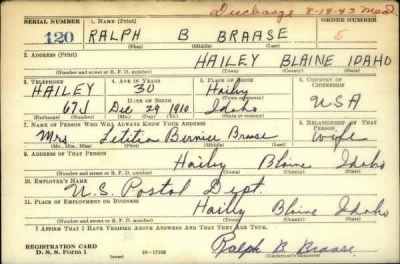 Discharge 8-18-43
SERIAL NUMBER 1. NAME (Print) ORDER NUMBER
120 RALPH B BRAASE
(First) (Middle) (Last)
2. ADDRESS (Print)
HAILEY BLAINE IDAHO
(Number and street or R. F. D. number) (Town) (County) (State)
3. TELEPHONE 4. AGE IN YEARS 5. PLACE OF BIRTH 6. COUNTRY OF CITIZENSHIP
HAILEY 30 Hailey
DATE OF BIRTH (Town or county) USA
67J Dec. 29 1910 Idaho
(Exchange) (Number) (Mo.) (Day) (Yr.) (State or country)
7. NAME OF PERSON WHO WILL ALWAYS KNOW YOUR ADDRESS 8. RELATIONSHIP OF THAT PERSON
Mrs Letitia Bernice Braase wife
(Mr., Mrs., Miss) (First) (Middle) (Last)
9. ADDRESS OF THAT PERSON
Hailey Blaine Idaho
(Number and street or R. F. D. number) (Town) (County) (State)
10. EMPLOYER'S NAME
U.S. Postal Dept.
11. PLACE OF EMPLOYMENT OR BUSINESS
Hailey Blaine Idaho
(Number and street or R. F. D. number) (Town) (County) (State)
I AFFIRM THAT I HAVE VERIFIED ABOVE ANSWERS AND THAT THEY ARE TRUE.
REGISTRATION CARD
D. S. S. Form 1 (over) 16—17105 Ralph B. Braase
(Registrant's signature)